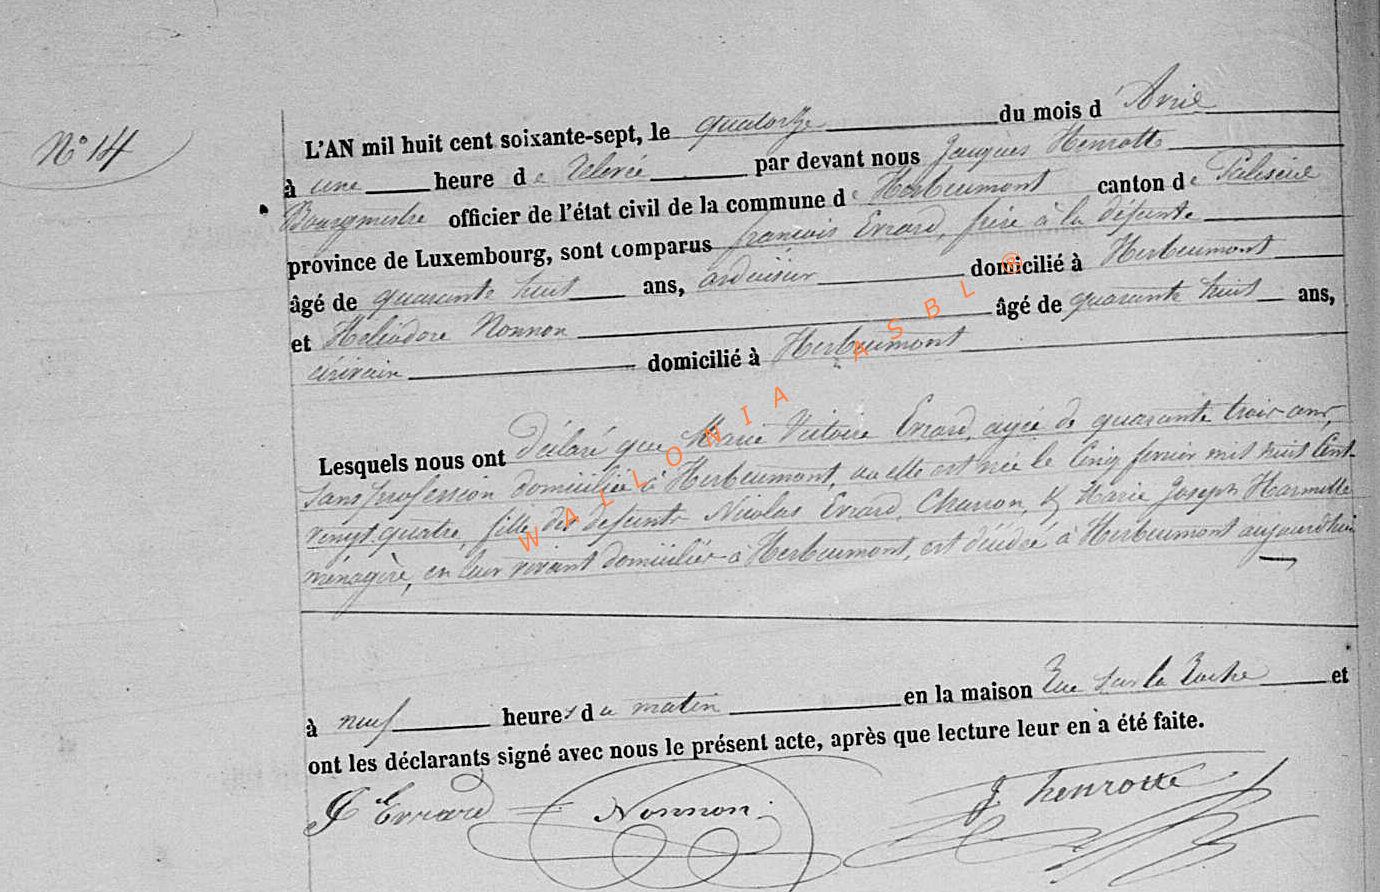 N° 14
L'AN mil huit cent soixante-sept, le quatorze du mois d'Avril
à une heure de relevée par devant nous Jacques Henrotte
Bourgmestre officier de l'état civil de la commune de Herbeumont canton de Paliseul
province de Luxembourg, sont comparus françois Errard, frère à la défunte
âgé de quarante huit ans, ardoisier domicilié à Herbeumont
et Héliodore Nonnon âgé de quarante huit ans,
écrivain domicilié à Herbeumont
Lesquels nous ont déclaré que Marie Victoire Errard, agée de quarante trois ans,
sans profession domiciliée à Herbeumont, où elle est née le Cinq février mil huit Cent
vingt quatre, fille des défunts Nicolas Errard, Charron, & Marie Joseph Harmelle
ménagère, en leur vivant domiciliés à Herbeumont, est décédée à Herbeumont aujourd'hui
à neuf heures du matin en la maison Rue sur la Roche et
ont les déclarants signé avec nous le présent acte, après que lecture leur en a été faite.
F Errard Nonnon J henrotte
WALLONIA ASBL ®